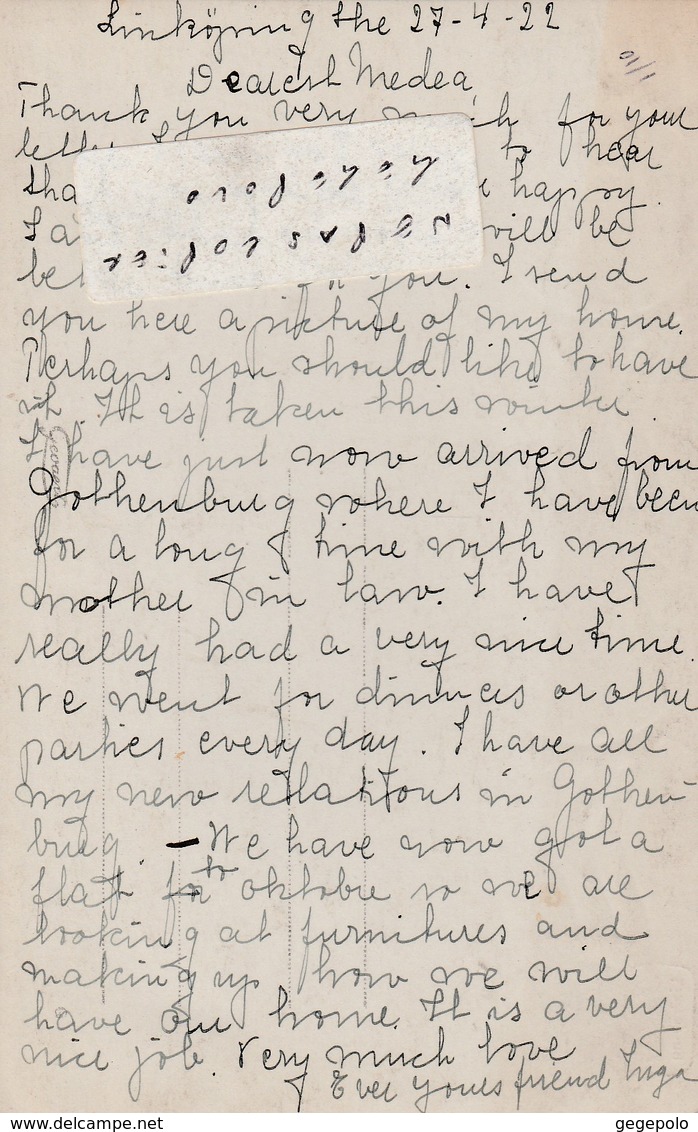 Linköping the 27-4-22
Dearest Medea
Thank you very much for your
to hear
tha happy.
I a will be
be you. I send
you here a picture of my home.
Perhaps you should like to have
it. It is taken this winter.
I have just now arrived from
Gothenburg where I have been
for a long time with my
mother in law. I have
really had a very nice time.
We went for dinners or other
parties every day. I have all
my new rellations in Gothen-
burg. – We have now got a
flat to oktobre so we are
looking at furnitures and
making up how we will
have our home. It is a very
nice job. Very much love
Ever yours friend Inga
ne pas copier
gegepolo